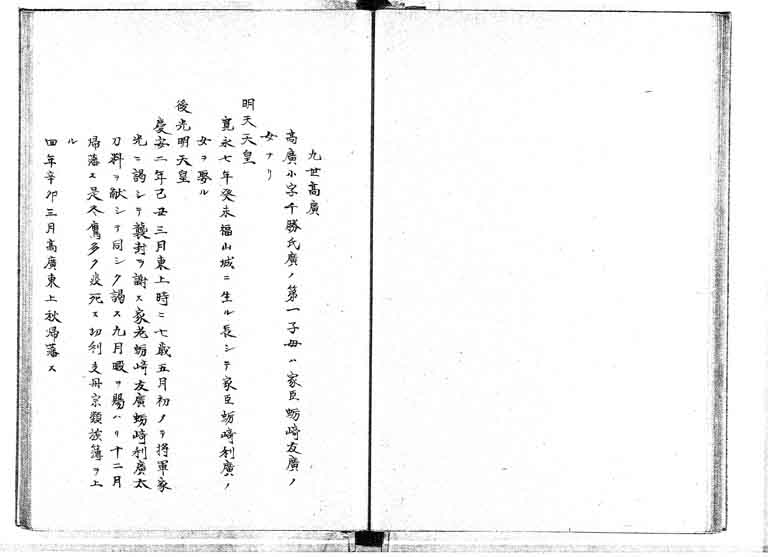 九世高廣
高廣小字千勝氏廣ノ第一子母ハ家臣蛎崎友廣ノ
女ナリ
明天天皇
寛永七年癸未福山城ニ生ル長シテ家臣蛎崎利廣ノ
女ヲ娶ル
後光明天皇
慶安二年己丑三月東上時ニ七歳五月初メテ将軍家
光ニ謁シテ襲封ヲ謝ス家老蛎崎友廣蛎崎利廣太
刀料ヲ献シテ同シク謁ス九月暇ヲ賜ハリ十二月
帰藩ス是冬鷹多ク疫死ス切利支丹宗類族簿ヲ上
ル
四年辛卯三月高廣東上秋帰藩ス